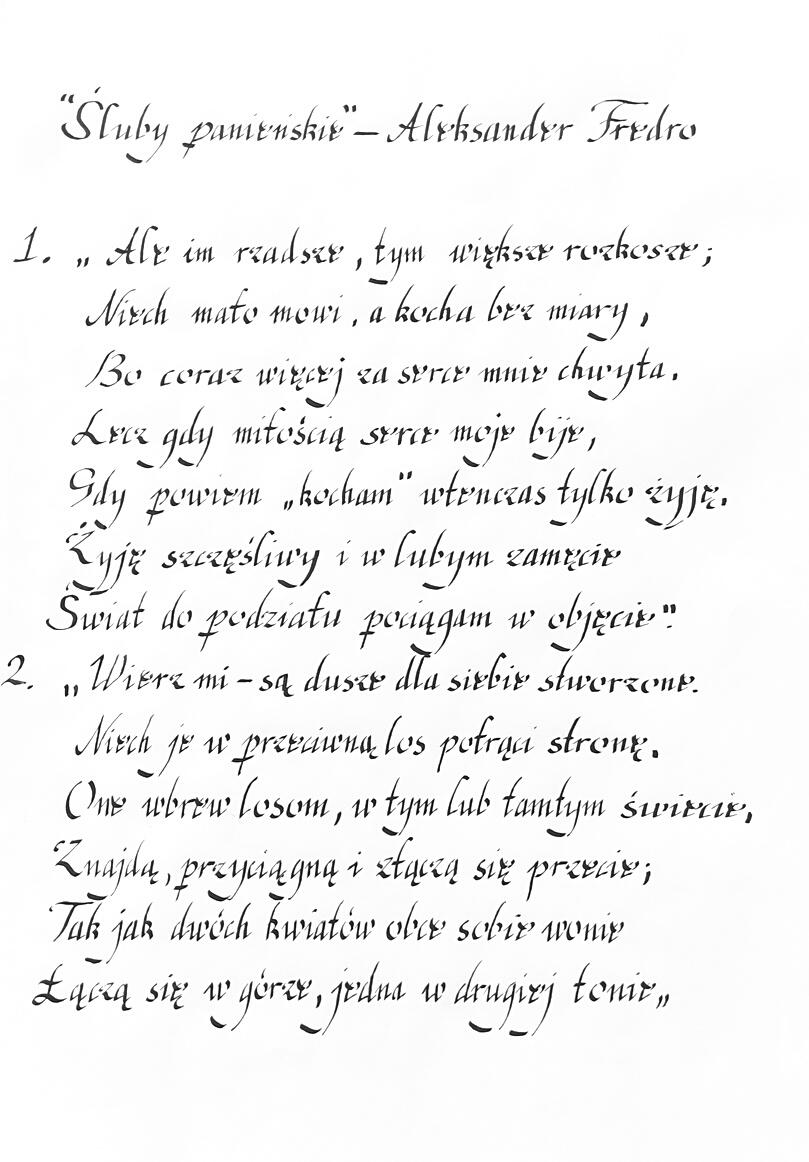 "Śluby panieńskie" – Aleksander Fredro
1. „Ale im rzadsze, tym większe rozkosze;
Niech mało mowi, a kocha bez miary,
Bo coraz więcej za serce mnie chwyta.
Lecz gdy miłością serce moje bije,
Gdy powiem „kocham" wtenczas tylko żyję.
Żyję szczęśliwy i w lubym zamęcie
Świat do podziału pociągam w objęcie".
2. „Wierz mi – są dusze dla siebie stworzone.
Niech je w przeciwną los potrąci stronę.
One wbrew losom, w tym lub tamtym świecie,
Znajdą, przyciągną i złączą się przecie;
Tak jak dwóch kwiatów obce sobie wonie
Łączą się w górze, jedna w drugiej tonie„